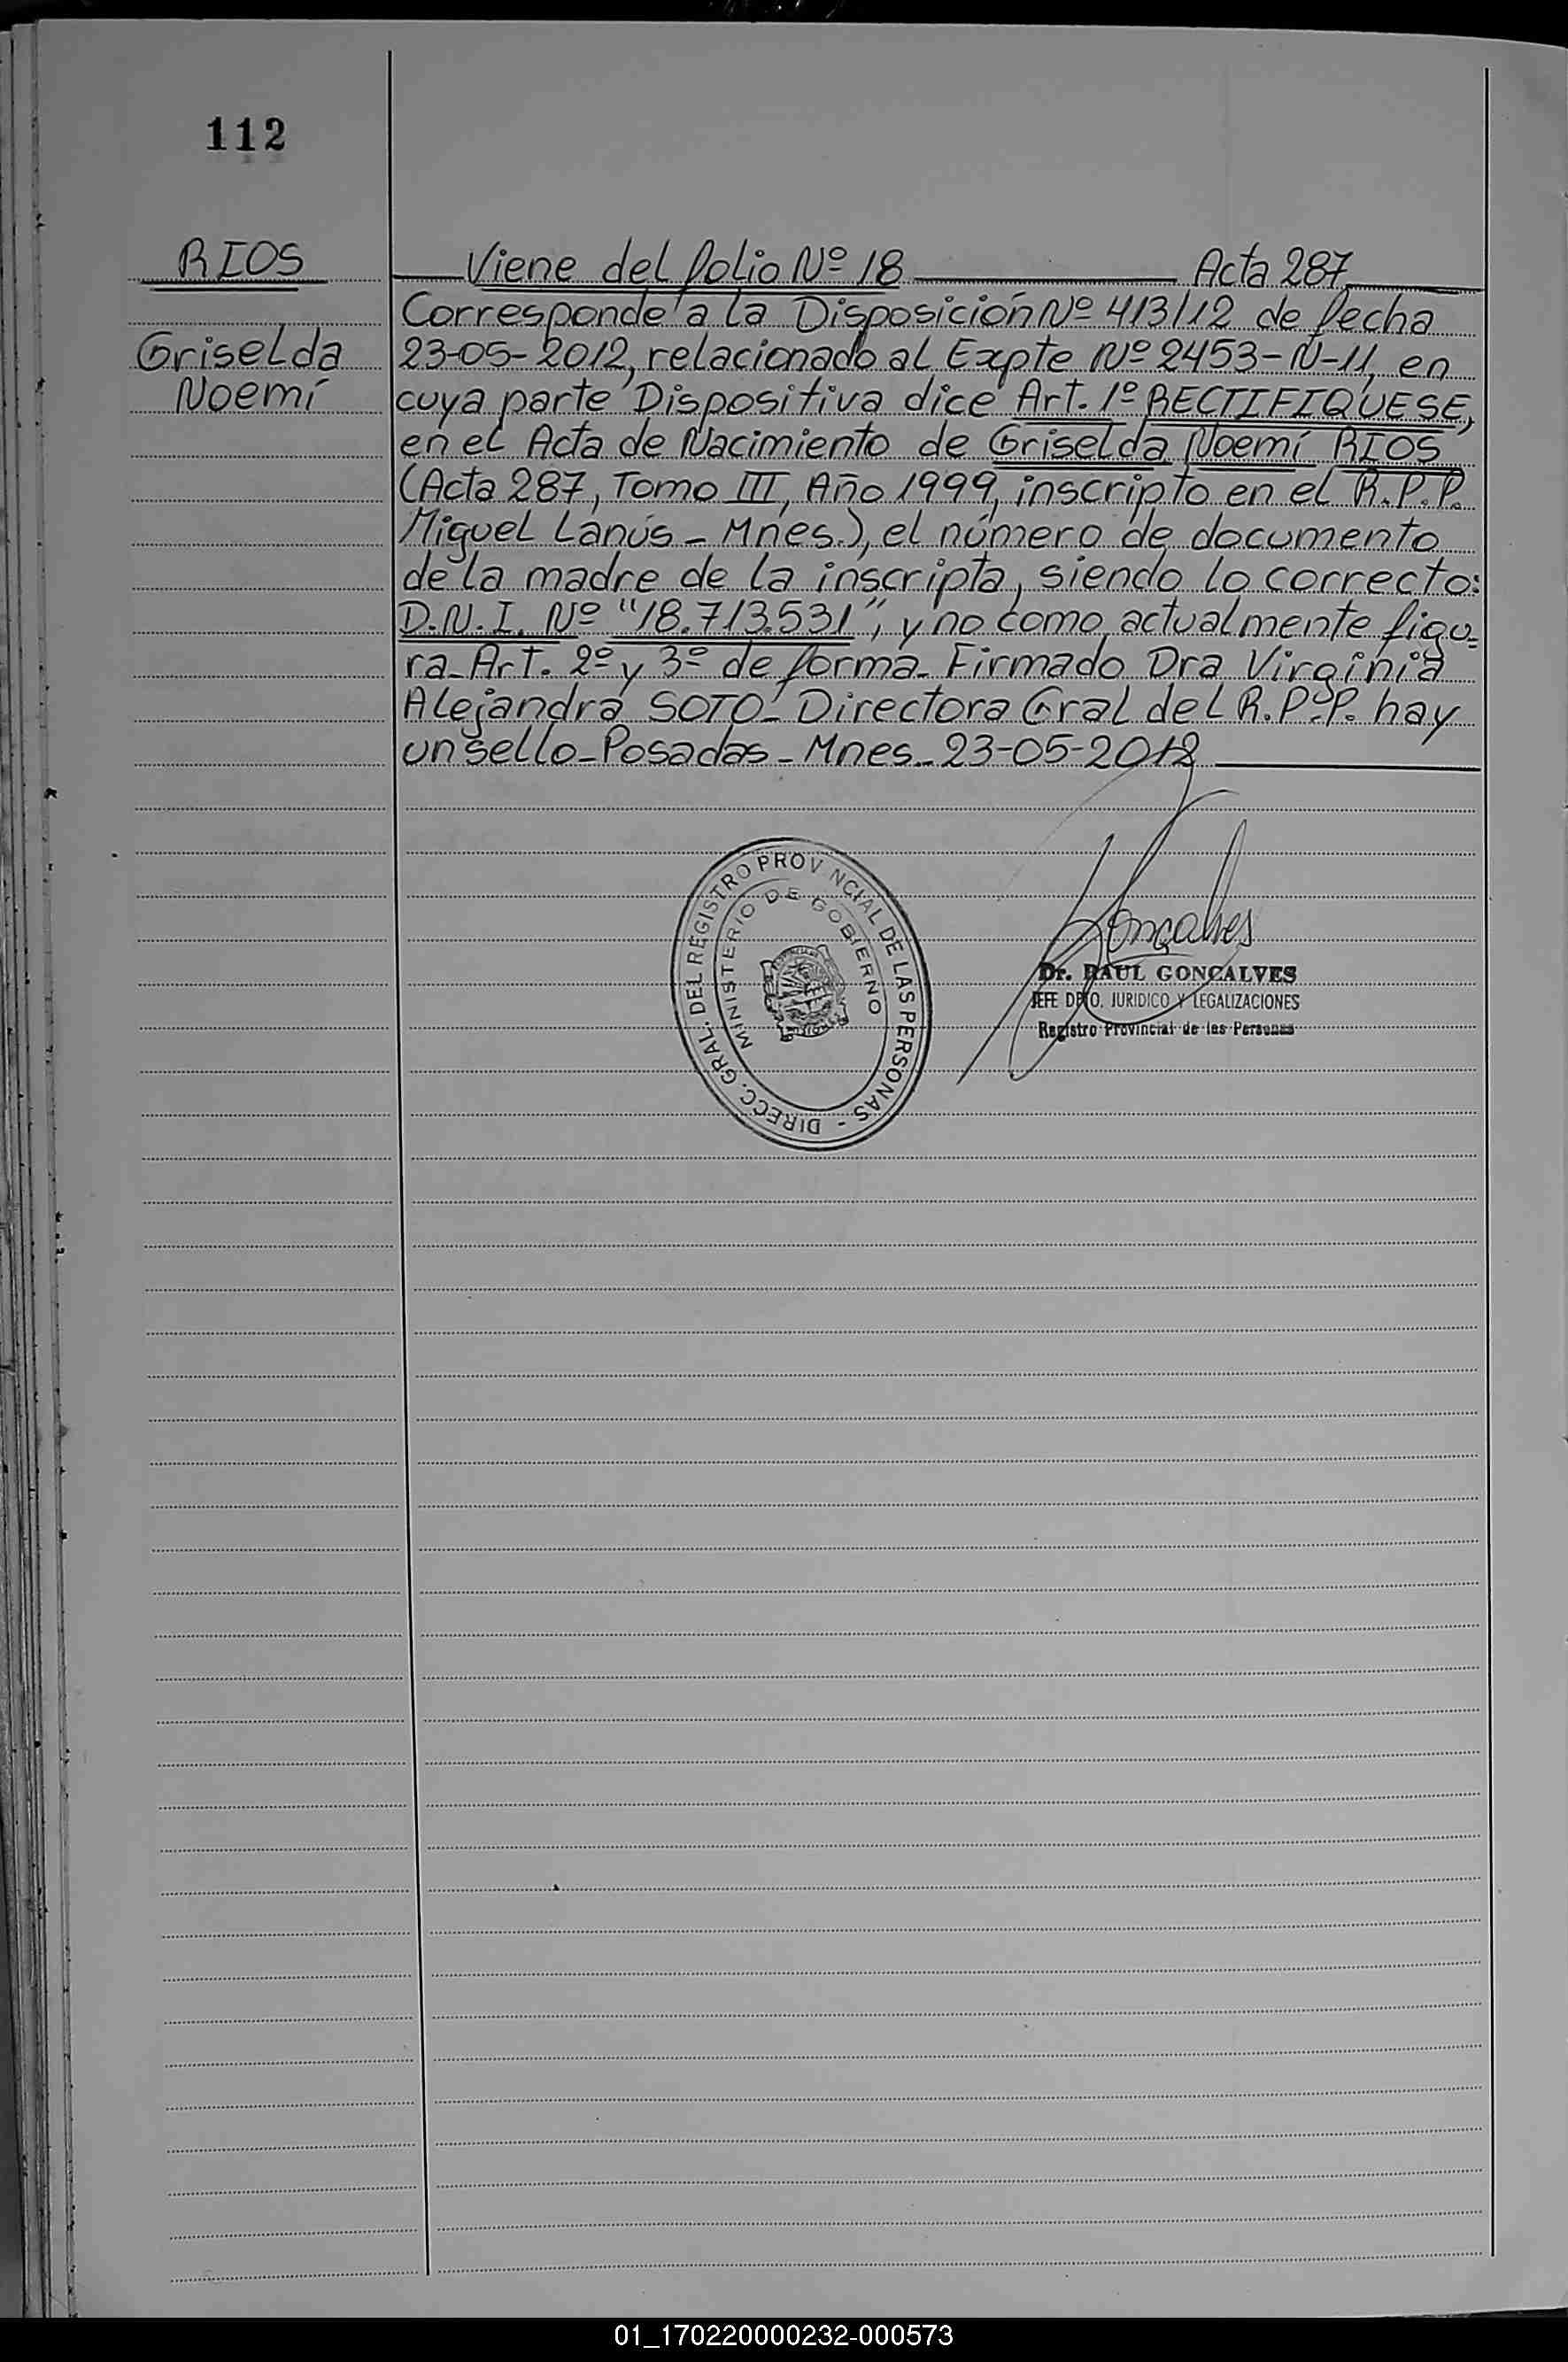 112
RIOS
Griselda
Noemí
Viene del folio Nº 18 Acta 287
Corresponde a la Disposición Nº 413/12 de fecha
23-05-2012, relacionado al Expte Nº 2453-N-11, en
cuya parte Dispositiva dice Art. 1º RECTIFIQUESE,
en el Acta de Nacimiento de Griselda Noemí RIOS
(Acta 287, Tomo III, Año 1999, inscripto en el R.P.P.
Miguel Lanús - Mnes.), el número de documento
de la madre de la inscripta, siendo lo correcto:
D.N.I. Nº "18.713.531", y no como actualmente figu-
ra. Art. 2º y 3º de forma. Firmado Dra Virginia
Alejandra SOTO - Directora Gral del R.P.P. hay
un sello - Posadas - Mnes. 23-05-2012
DIRECC. GRAL. DEL REGISTRO PROV NCIAL DE LAS PERSONAS -
MINISTERIO DE GOBIERNO
Gonçalves
Dr. RAUL GONCALVES
JEFE DPTO. JURIDICO Y LEGALIZACIONES
Registro Provincial de las Personas
01_170220000232-000573